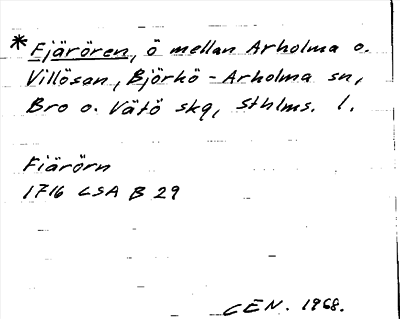 *Fjärören, ö mellan Arholma o.
Villösan, Björkö-Arholma sn,
Bro o. Vätö skg, Sthlms. l.
Fiärörn
1716 LSA B 29
CEN. 1968.